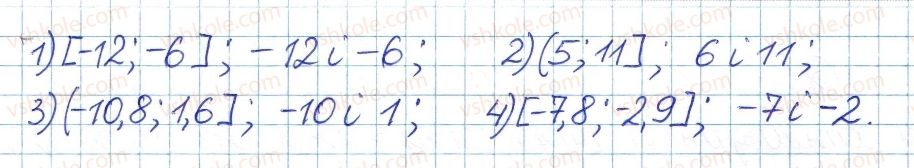 1) [-12; -6]; -12 і -6; 2) (5; 11]; 6 і 11;
3) (-10,8; 1,6]; -10 і 1; 4) [-7,8; -2,9]; -7 і -2.